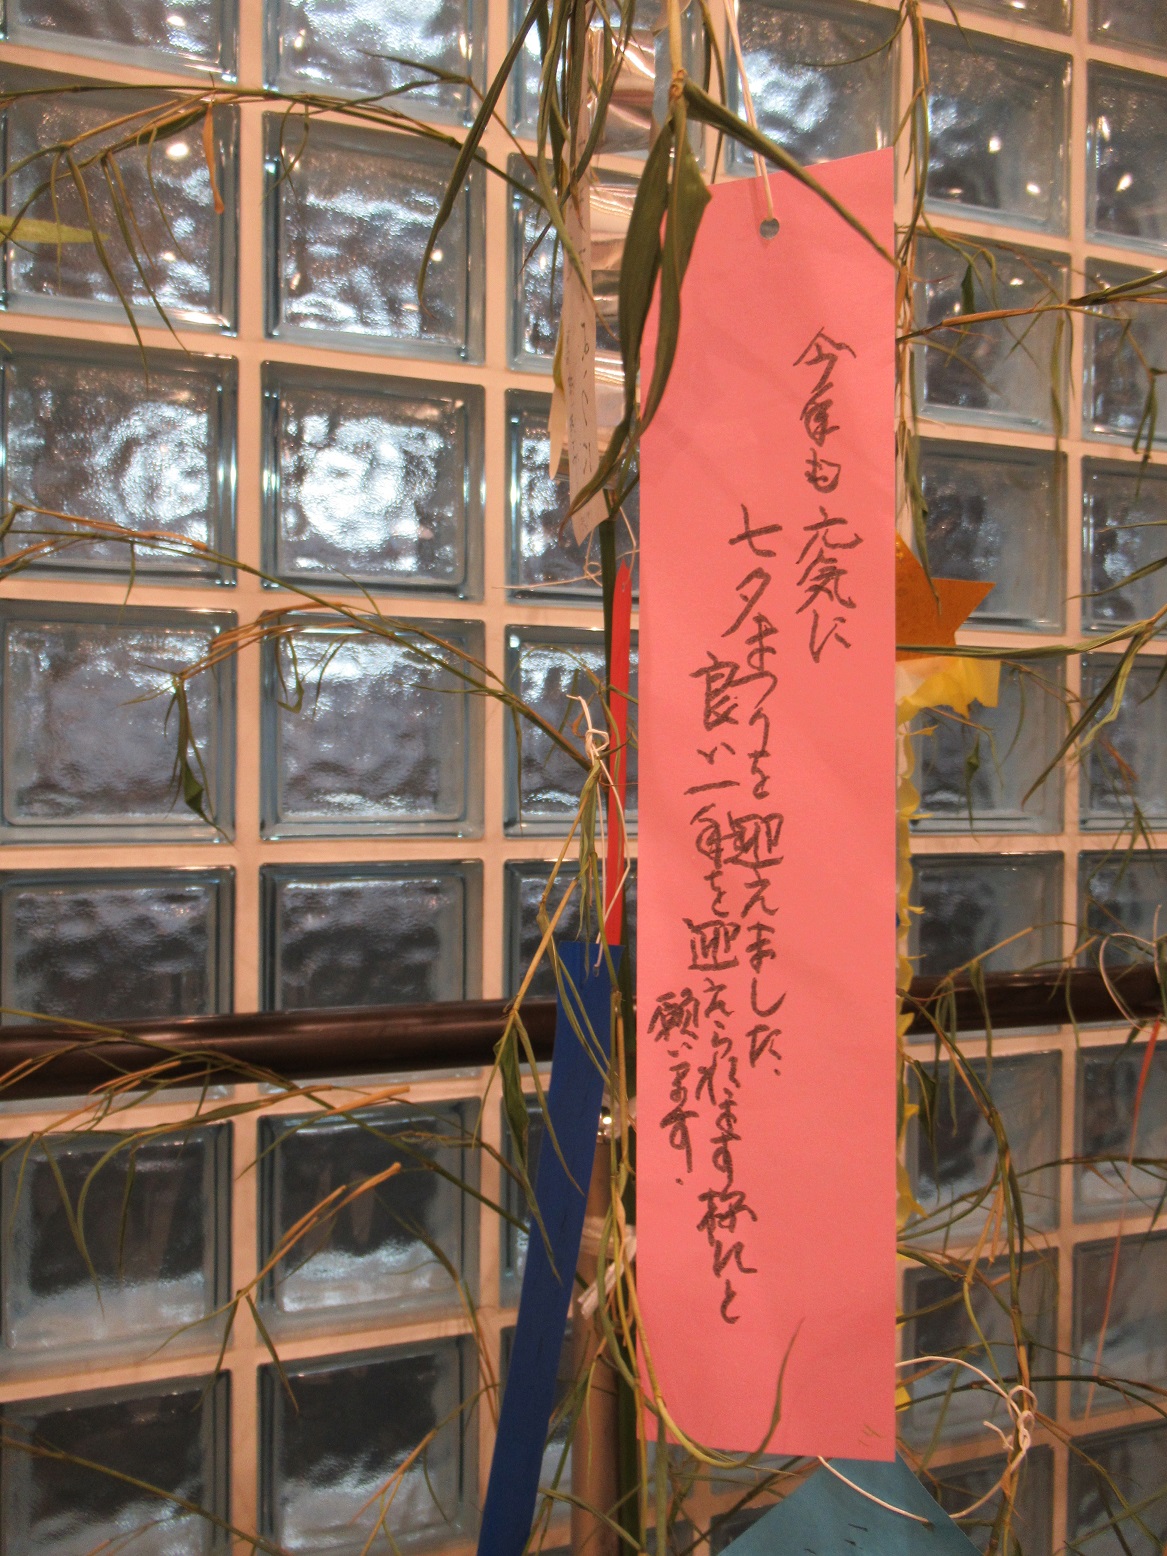 今年も元気に
七夕まつりを迎えました
良い一年を迎えられます様にと
願います。